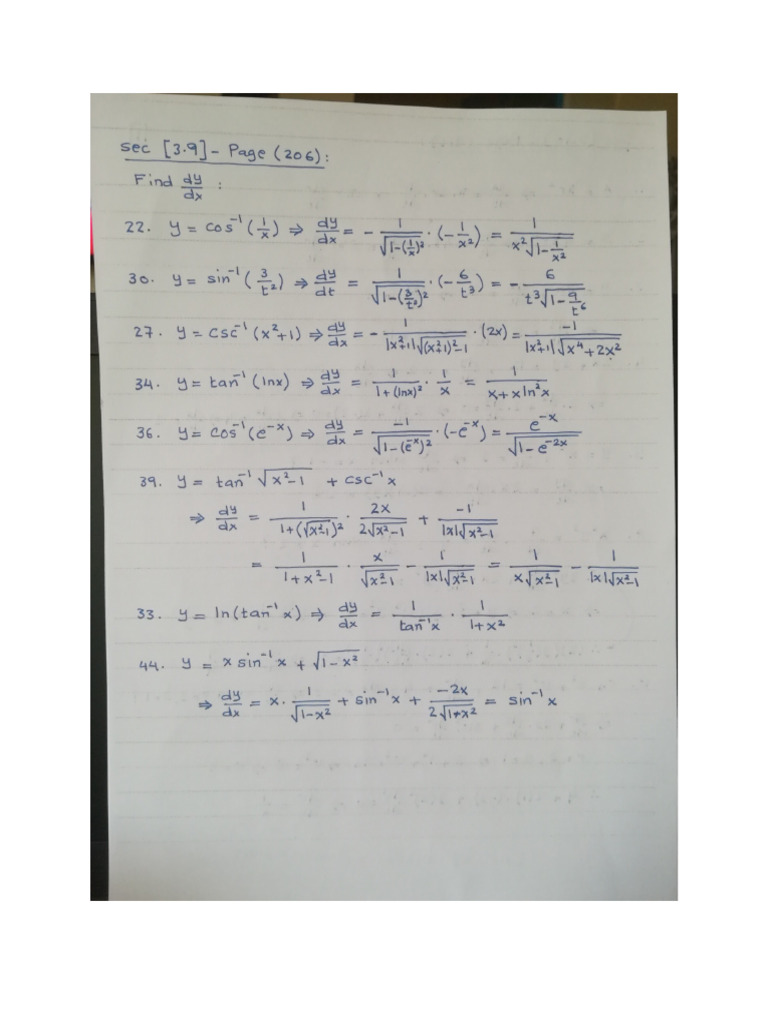 sec [3.9] - Page (206):
Find dy/dx :
22. y = cos⁻¹(1/x) ⇒ dy/dx = - 1/√(1-(1/x)²) · (-1/x²) = 1/(x²√(1-1/x²))
30. y = sin⁻¹(3/t²) ⇒ dy/dt = 1/√(1-(3/t²)²) · (-6/t³) = - 6/(t³√(1-9/t⁶))
27. y = csc⁻¹(x²+1) ⇒ dy/dx = - 1/(|x²+1|√((x²+1)²-1)) · (2x) = -1/(|x²+1|√(x⁴+2x²))
34. y = tan⁻¹(lnx) ⇒ dy/dx = 1/(1+(lnx)²) · 1/x = 1/(x+xln²x)
36. y = cos⁻¹(e⁻ˣ) ⇒ dy/dx = -1/√(1-(e⁻ˣ)²) · (-e⁻ˣ) = e⁻ˣ/√(1-e⁻²ˣ)
39. y = tan⁻¹√(x²-1) + csc⁻¹x
⇒ dy/dx = 1/(1+(√(x²-1))²) · 2x/(2√(x²-1)) + -1/(|x|√(x²-1))
= 1/(1+x²-1) · x/√(x²-1) - 1/(|x|√(x²-1)) = 1/(x√(x²-1)) - 1/(|x|√(x²-1))
33. y = ln(tan⁻¹x) ⇒ dy/dx = 1/tan⁻¹x · 1/(1+x²)
44. y = x sin⁻¹x + √(1-x²)
⇒ dy/dx = x · 1/√(1-x²) + sin⁻¹x + -2x/(2√(1-x²)) = sin⁻¹x